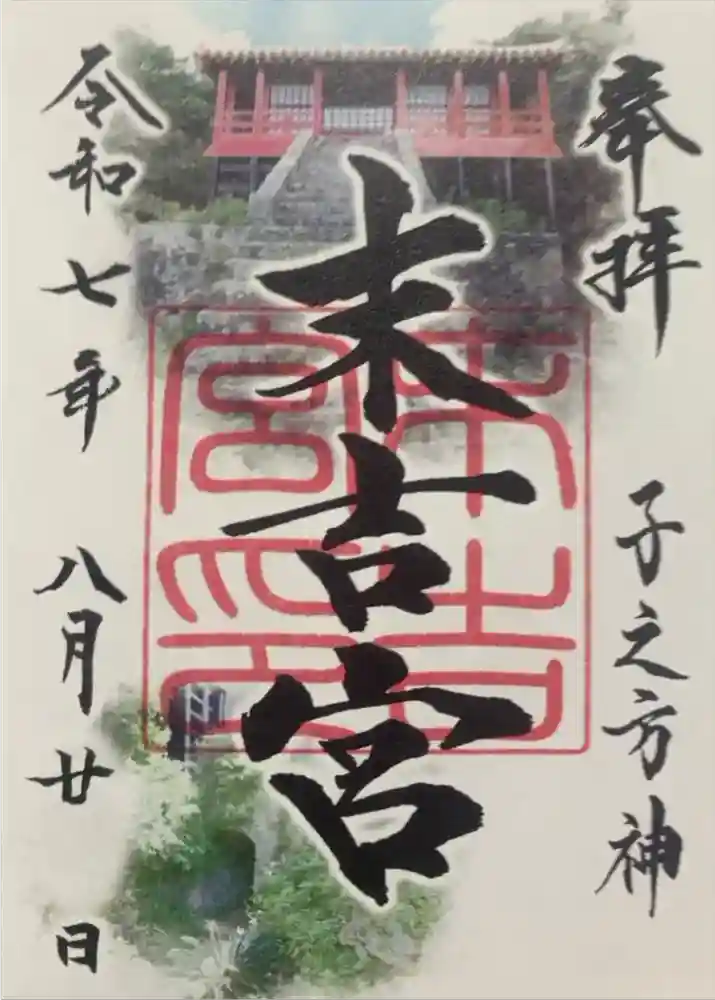 奉拝
子之方神
末吉宮
末吉宮印
令和七年八月廿日